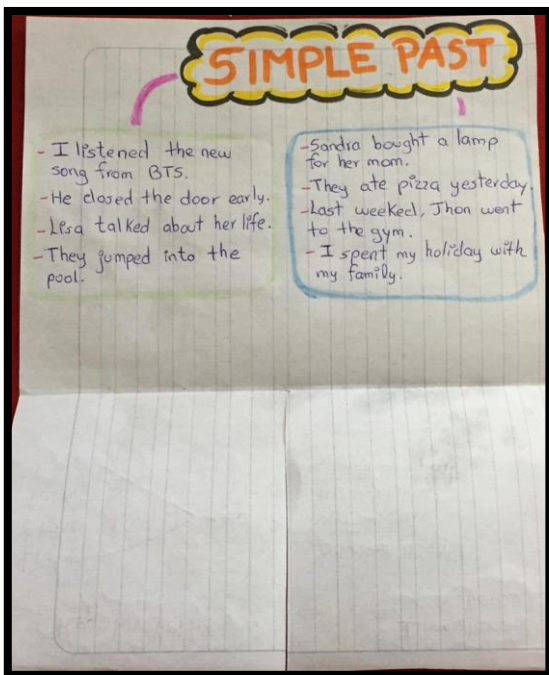 SIMPLE PAST
- I listened the new
song from BTS.
- He closed the door early.
- Lisa talked about her life.
- They jumped into the
pool.
- Sandra bought a lamp
for her mom.
- They ate pizza yesterday.
- Last weekecl, Jhon went
to the gym.
- I spent my holiday with
my family.